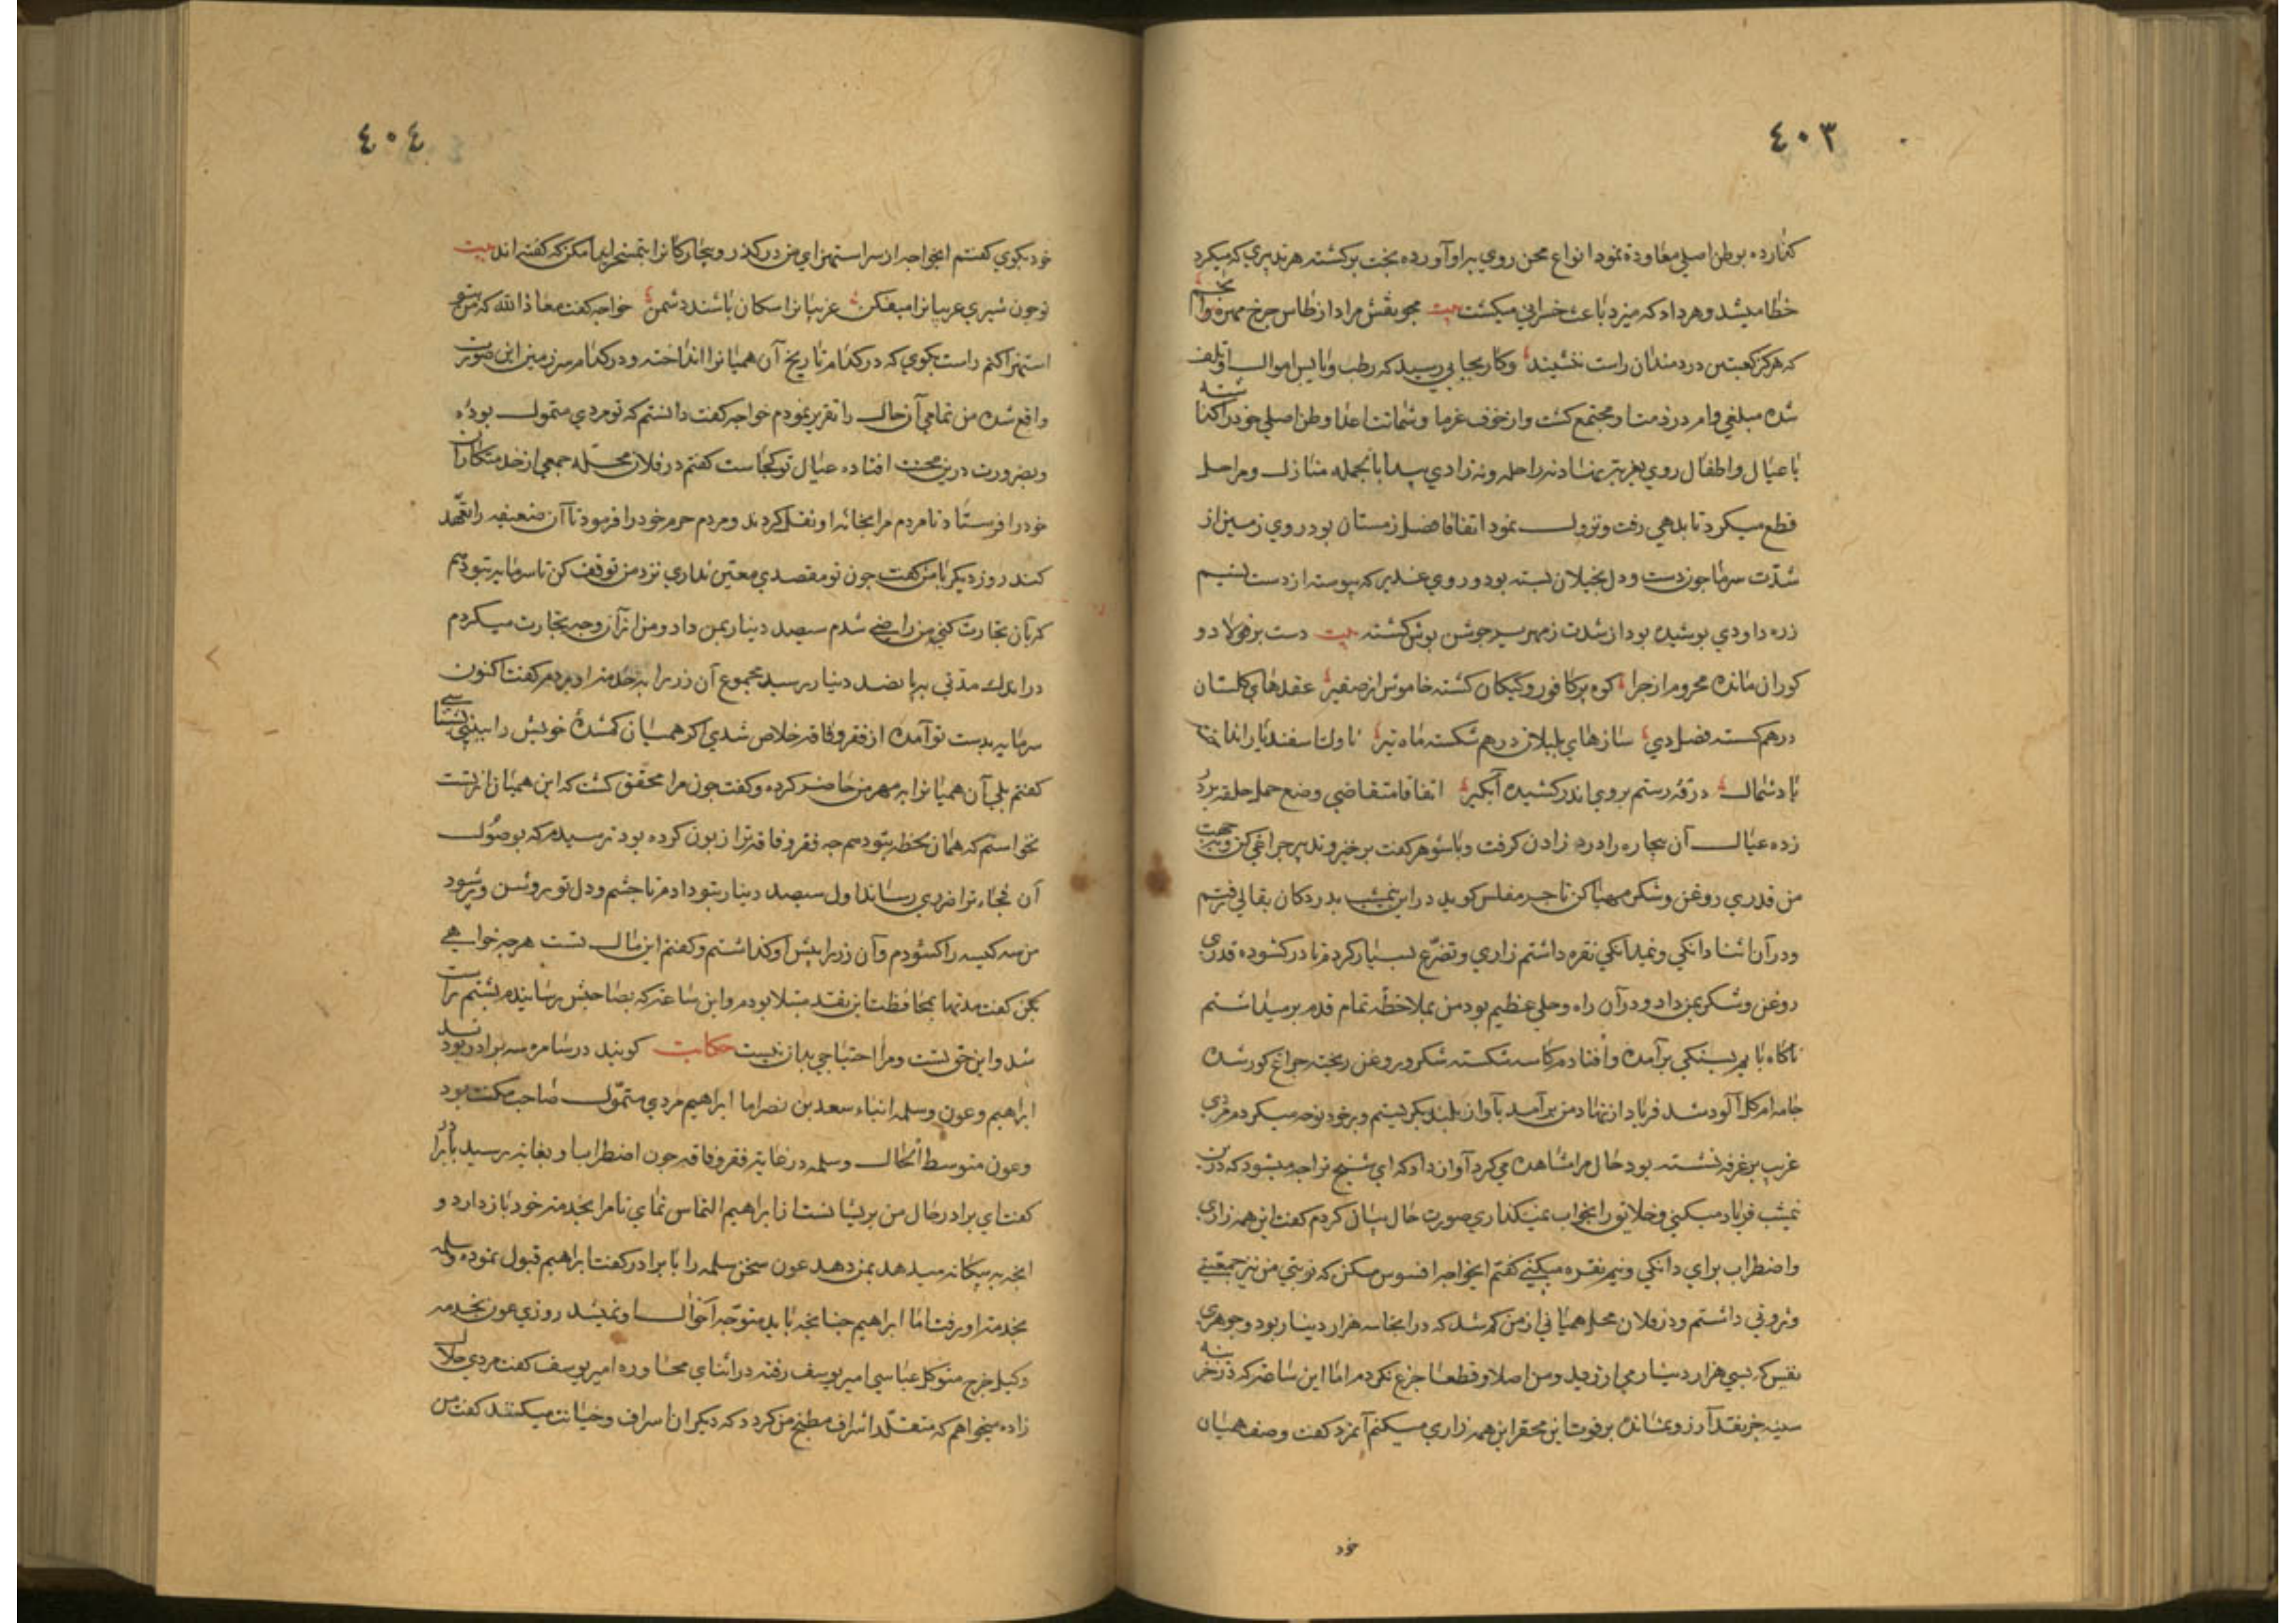 ٤٠٣
گذارده بوطن اصلی معاودة نمود انواع محن روی براو آورده بخت برکشته هر تدبیری که میکرد
خطا میشد و هر داد که میزد باعث خرابی میکشت بیت مجو نقش مراد از طاس چرخ مهره
که هرکز کعبتین دردمندان راست ننشیند وکار بجایی رسید که رطب و یابس اموال او تلف
شده مبلغی وام در ذمت او مجتمع کشت و از خوف غرما و شماتت اعدا وطن اصلی خود را
با عیال و اطفال روی بغربت نهاد نه راحله و نه زادی پیدا بالجمله منازل و مراحل
قطع میکرد تا بدهی رفت و نزول نمود اتفاقا فصل زمستان بود روی زمین از
شدّت سرما چون دست و دل بخیلان بسته بود و روی غدیر که پیوسته از دست نسیم
زره داودی پوشیده بود از شدت زمهریر جوشن پوش کشته بیت دست بر فولاد و
کوران مانده محروم از چرا کوه پر کافور و کبکان کشته خاموش از صفیر عقدهای کلستان
درهم کسته فصل دی سازهای بلبلان درهم شکسته ماه تیر ناوک اسفندیار
باد شمال درقه رستم بروی اندر کشیده آبکیر اتفاقا متقاضی وضع حمل حلقه بر در
زده عیال آن بیچاره را درد زادن کرفت و با شوهر کفت برخیز و تدبیر چراغی کن و بجهت
من قدری روغن و شکر مهیا کن تاجر مفلس کوید در این نیمشب بدر دکان بقالی رفتم
و در آن اثنا دانکی و نیم دانکی نقره داشتم زاری و تضرّع بسیار کردم تا در کشوده قدری
روغن و شکر بمن داد و در آن راه وحلی عظیم بود من بملاحظه تمام قدم بر میداشتم
ناکاه پایم بسنکی برآمده و افتادم کاسه شکسته شکر و روغن ریخته چراغ کور شده
جامه ام کل آلود شد فریاد از نهاد من برآمد بآواز بلند بکریستم و بر خود نوحه میکردم مردی
غریب بر غرفه نشسته بود حال مرا مشاهده می کرد آواز داد که ای شیخ ترا چه میشود که درین
نیمشب فریاد میکنی و خلایق را بخواب نمیکذاری صورت حال بیان کردم کفت این همه زاری
و اضطراب برای دانکی و نیم نقره میکنی کفتم ایخواجه افسوس مکن که نوبتی من نیز جمعیتی
و ثروتی داشتم و در فلان محل همیانی از من کم شد که در آنجا سه هزار دینار بود و جوهری
نفیس که بسی هزار دینار می ارزید و من اصلا و قطعا جزع نکردم اما این ساعت که در خزینه
سینه جز نقد آرزو نمانده بر فوت این محقر این همه زاری میکنم آنمرد کفت وصف همیان
خود
٤٠٤
خود بکوی کفتم ایخواجه از سر استهزای من در کذر و بیچارکانرا بتمسخر ایذا مکن که کفته اند بیت
تو چون شیری غریبانرا میفکن غریبانرا سکان باشند دشمن خواجه کفت معاذ الله که من بتو
استهزا کنم راست بکوی که در کدام تاریخ آن همیانرا انداخته و در کدام سرزمین این صورت
واقع شده من تمامی آن حال را تقریر نمودم خواجه کفت دانستم که تو مردی متمول بوده
و بضرورت درین محنت افتاده عیال تو کجاست کفتم در فلان محلّه جمعی از خدمتکاران
خود را فرستاد تا مردم مرا بخانه او نقل کردند و مردم حرم خود را فرمود تا آن ضعیفه را تعهّد
کنند روز دیکر با من کفت چون تو مقصدی معین نداری نزد من توقف کن تا سرمایه بتو دهم
که بآن تجارت کنی من راضی شدم سیصد دینار بمن داد و من از آن وجه تجارت میکردم
در اندک مدّتی بپانصد دینار رسید مجموع آن زر را بخدمت او بردم کفت اکنون
سرمایه بدست تو آمده از فقر و فاقه خلاص شدی اکر همیان کمشدهٔ خویش را ببینی بشناسی
کفتم بلی آن همیانرا بمهر من حاضر کرده و کفت چون مرا محقّق کشت که این همیان از تست
نخواستم که همان لحظه بتو دهم چه فقر و فاقه ترا زبون کرده بود ترسیدم که بوصول
آن فجاء ترا ضرری رساند اول سیصد دینار بتو دادم تا چشم و دل تو روشن و پر شود
من سه کیسه را کشودم و آن زر را پیش او کذاشتم و کفتم این مال تست هر چه خواهی
بکن کفت مدتها بمحافظت این نقد مبتلا بودم و این ساعت که بصاحبش رسانیدم پشتم راست
شد و این حق تست و مرا احتیاجی بدان نیست حکایت کویند در سامره سه برادر بودند
ابراهیم و عون و سلمه ابناء سعد بن نصر اما ابراهیم مردی متموّل صاحب مکنت بود
و عون متوسط الحال و سلمه در غایة فقر و فاقه چون اضطراب او بغایة رسید با برادر
کفت ای برادر حال من پریشانست از ابراهیم التماس نمای تا مرا بخدمة خود باز دارد و
آنچه به بیکانه میدهد بمن دهد عون سخن سلمه را با برادر کفت ابراهیم قبول نموده و سلمه
بخدمة او رفت اما ابراهیم چنانچه باید متوجّه احوال او نمیشد روزی عون بخدمة
وکیل خرج متوکل عباسی امیر یوسف رفته در اثنای محاوره امیر یوسف کفت مردی حلال
زاده میخواهم که متقلّد اشراف مطبخ من کردد که دیکران اسراف و خیانت میکنند کفت من